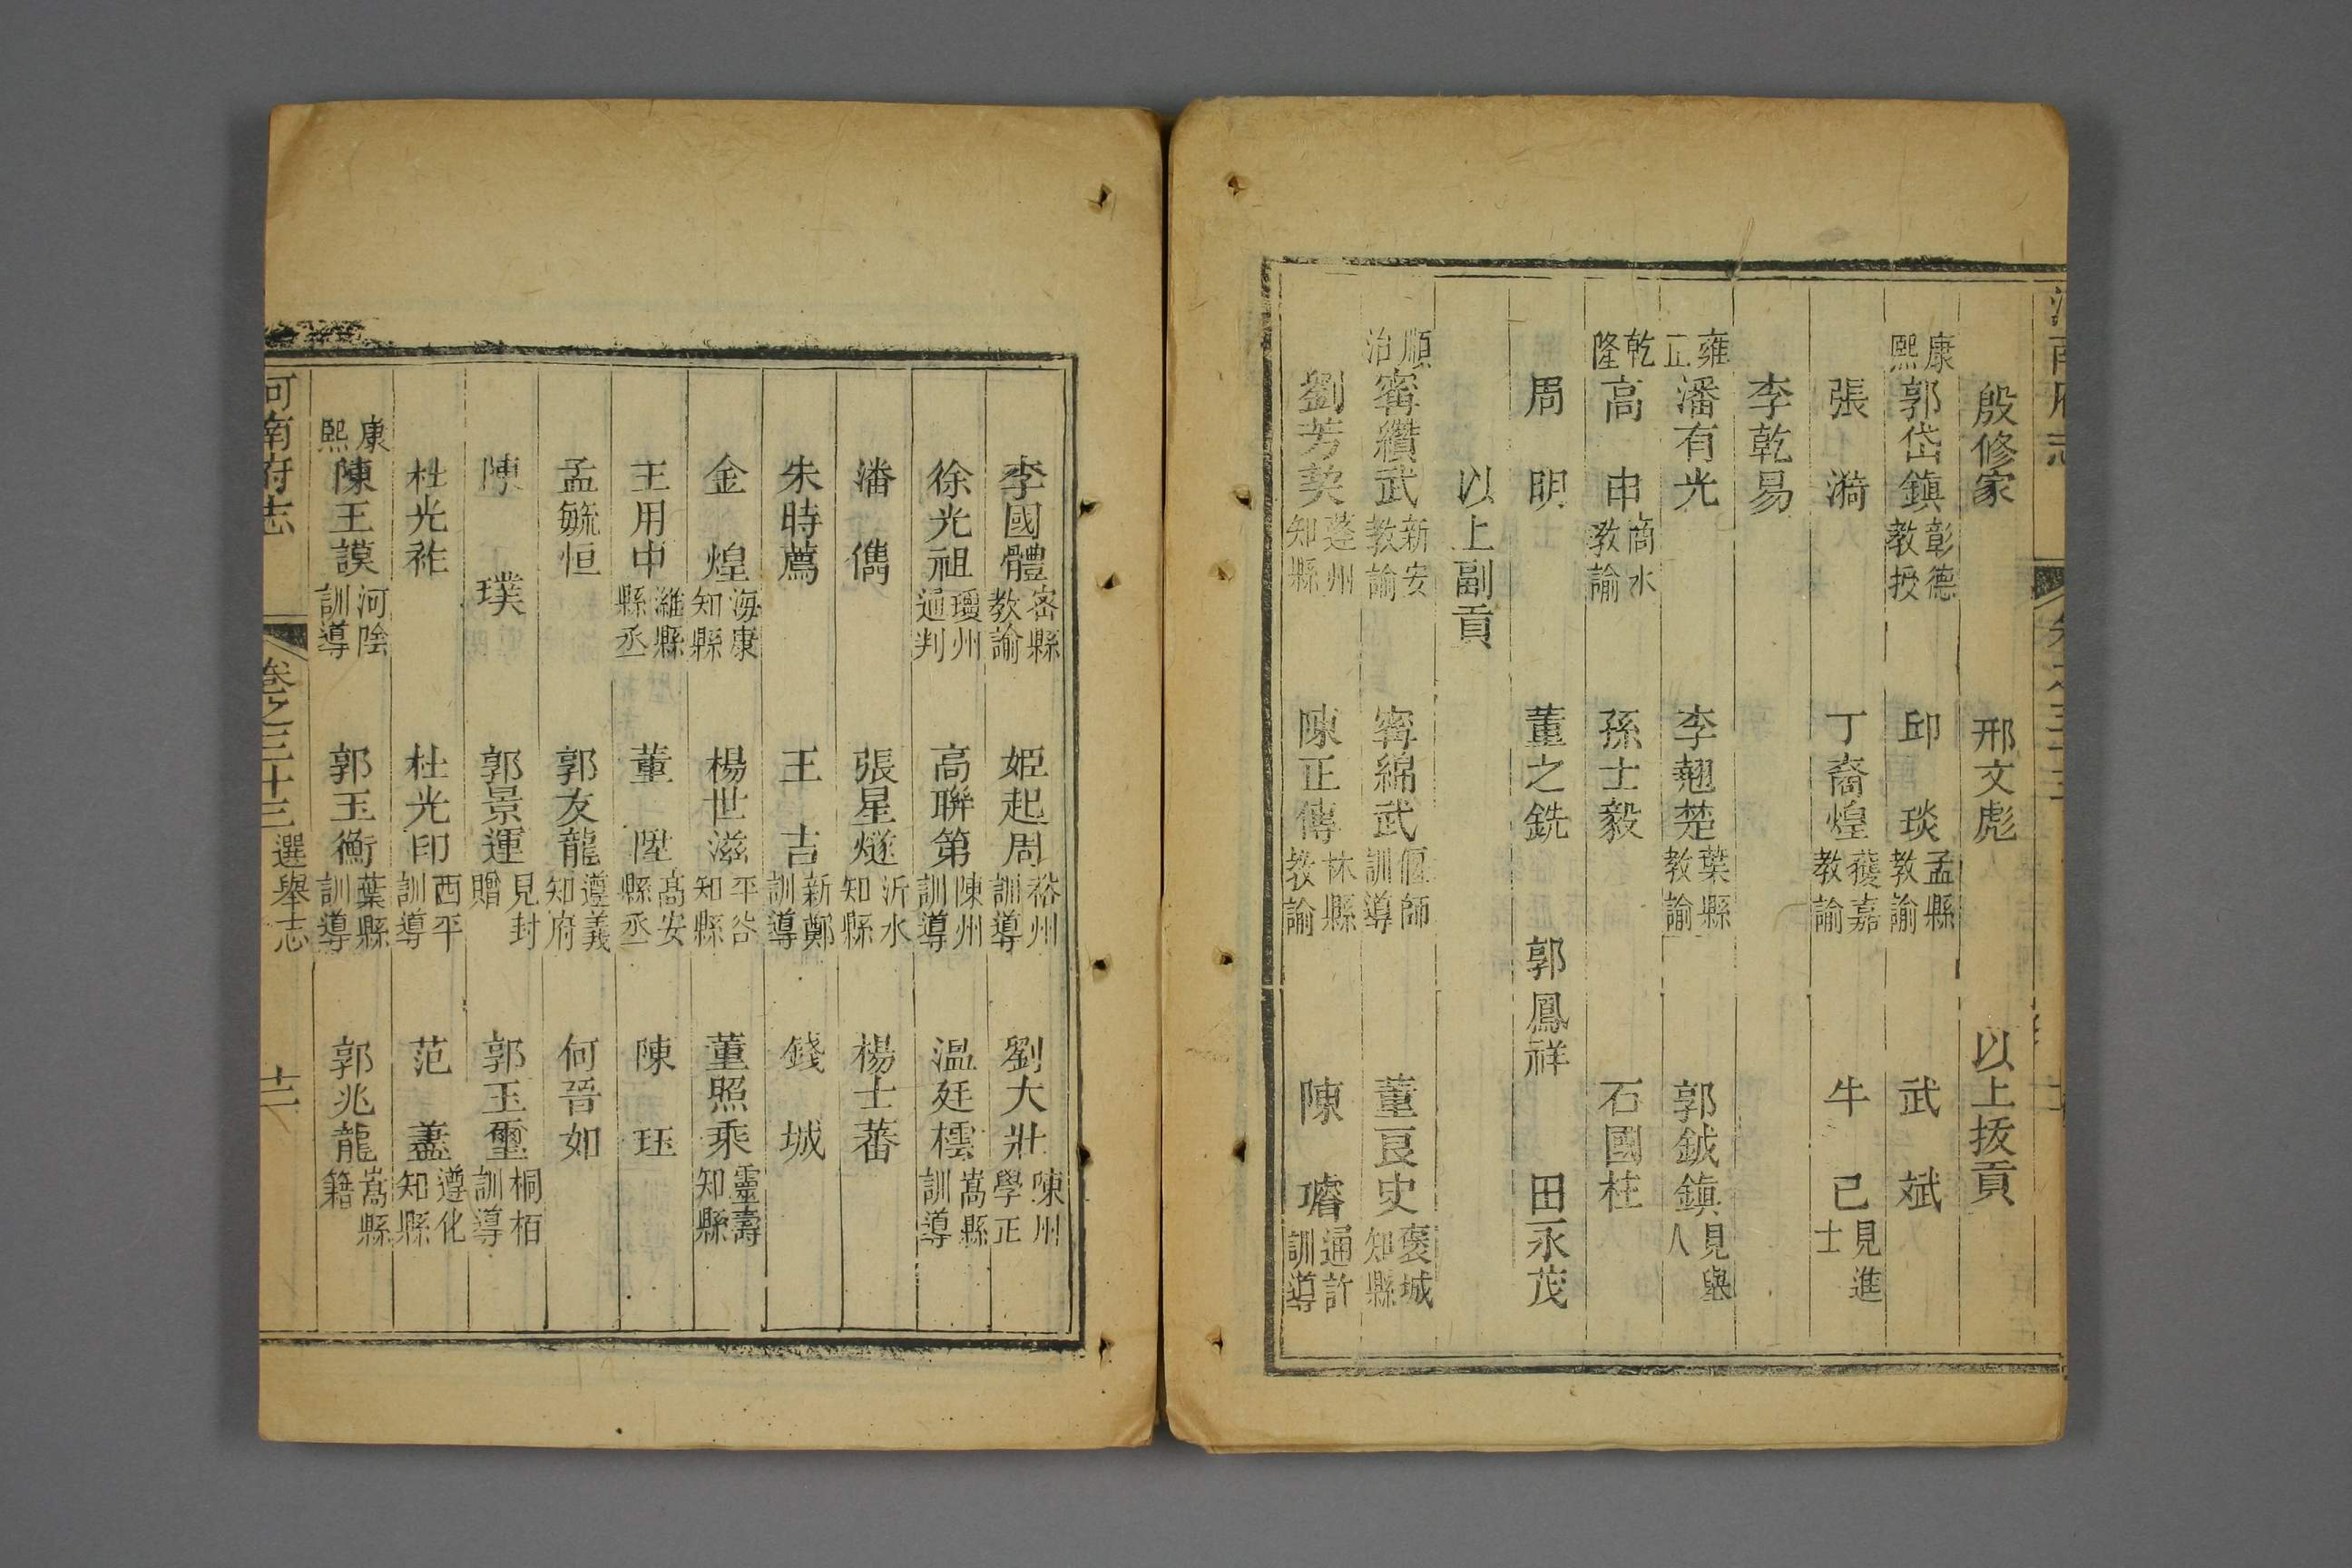 殷修家 邢文彪 以上拔貢
康熙 郭岱鎮 彰德教授 邱琰 孟縣教諭 武斌
張漪 丁裔煌 獲嘉教諭 牛己 見進士
李乾易
雍正 潘有光 李翹楚 葉縣教諭 郭鉞鎮 見舉人
乾隆 高申 商水教諭 孫士毅 石國柱
周明 董之銑 郭鳳祥 田永茂
以上副貢
順治 甯纘武 新安教諭 甯綿武 偃師訓導 董良史 褒城知縣
劉芳奕 蓬州知縣 陳正傳 林縣教諭 陳璿 通許訓導
李國體 密縣教諭 姬起周 裕州訓導 劉大壯 陳州學正
徐光祖 瓊州通判 高聯第 陳州訓導 溫廷樰 嵩縣訓導
潘儁 張星燧 沂水知縣 楊士蕃
朱時薦 王吉 新鄭訓導 錢城
金煌 海康知縣 楊世滋 平谷知縣 董照乘 靈壽知縣
王用中 濰縣縣丞 董陞 高安縣丞 陳珏
孟毓恒 郭友龍 遵義知府 何晉如
陳璞 郭景運 見封贈 郭玉璽 桐栢訓導
杜光祚 杜光印 西平訓導 范藎 遵化知縣
康熙 陳王謨 河陰訓導 郭玉衡 葉縣訓導 郭兆龍 嵩縣籍
河南府志 卷之三十三 選舉志 十二